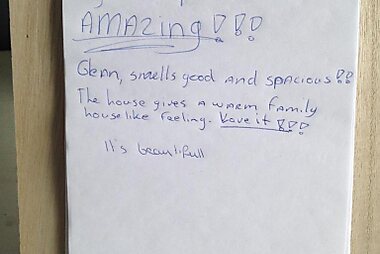 AMAZing!!!
Clean, smells good and spacious!!
The house gives a warm family
houselike feeling. Love it!!!
It's beautifull